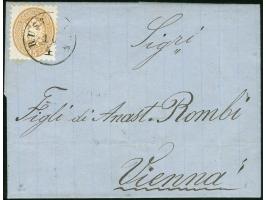 Sigri
Figli di Anast. Rombi
Vienna